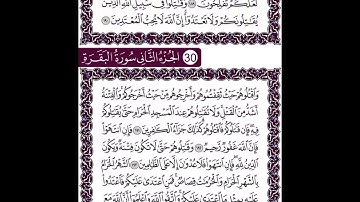 لَعَلَّكُمْ تُفْلِحُونَ ۝ وَقَاتِلُوا فِي سَبِيلِ اللَّهِ الَّذِينَ
يُقَاتِلُونَكُمْ وَلَا تَعْتَدُوا إِنَّ اللَّهَ لَا يُحِبُّ الْمُعْتَدِينَ
30 الجُزْءُ الثَّانِي سُورَةُ الْبَقَرَةِ
وَاقْتُلُوهُمْ حَيْثُ ثَقِفْتُمُوهُمْ وَأَخْرِجُوهُمْ مِنْ حَيْثُ أَخْرَجُوكُمْ وَالْفِتْنَةُ
أَشَدُّ مِنَ الْقَتْلِ وَلَا تُقَاتِلُوهُمْ عِنْدَ الْمَسْجِدِ الْحَرَامِ حَتَّى يُقَاتِلُوكُمْ
فِيهِ فَإِنْ قَاتَلُوكُمْ فَاقْتُلُوهُمْ كَذَلِكَ جَزَاءُ الْكَافِرِينَ ۝ فَإِنِ انْتَهَوْا
فَإِنَّ اللَّهَ غَفُورٌ رَحِيمٌ ۝ وَقَاتِلُوهُمْ حَتَّى لَا تَكُونَ فِتْنَةٌ وَيَكُونَ
الدِّينُ لِلَّهِ فَإِنِ انْتَهَوْا فَلَا عُدْوَانَ إِلَّا عَلَى الظَّالِمِينَ ۝ الشَّهْرُ الْحَرَامُ
بِالشَّهْرِ الْحَرَامِ وَالْحُرُمَاتُ قِصَاصٌ فَمَنِ اعْتَدَى عَلَيْكُمْ فَاعْتَدُوا
عَلَيْهِ بِمِثْلِ مَا اعْتَدَى عَلَيْكُمْ وَاتَّقُوا اللَّهَ وَاعْلَمُوا أَنَّ اللَّهَ مَعَ